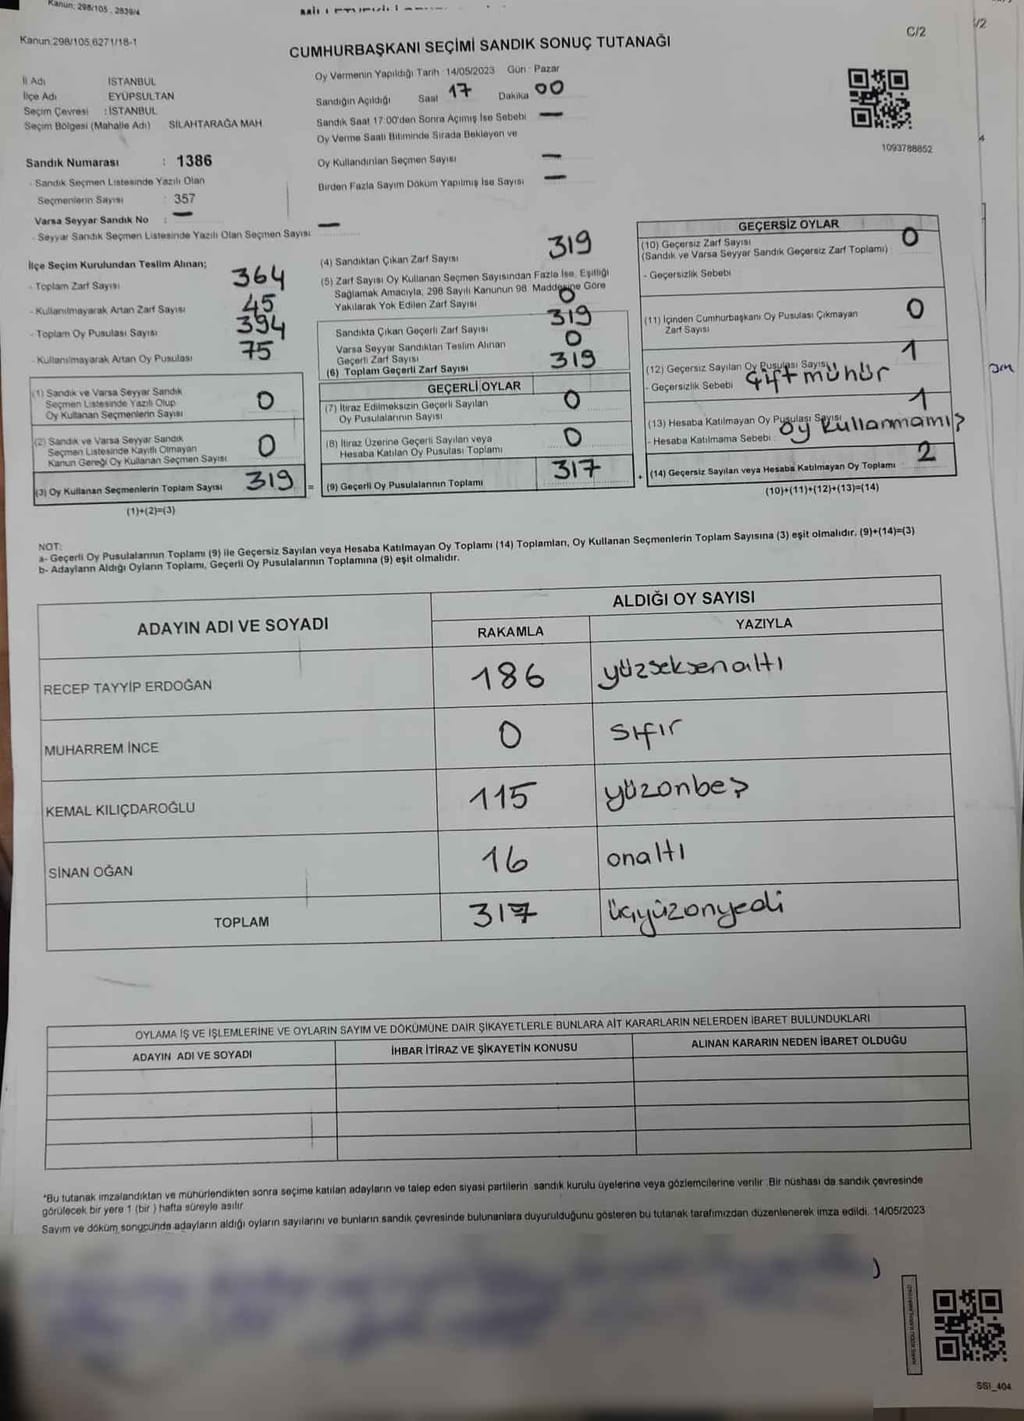 Kanun; 298/105, 2839/4
Kanun.298/105,6271/18-1
C/2
/2
CUMHURBAŞKANI SEÇİMİ SANDIK SONUÇ TUTANAĞI
İl Adı İSTANBUL
İlçe Adı EYÜPSULTAN
Seçim Çevresi : İSTANBUL
Seçim Bölgesi (Mahalle Adı) SİLAHTARAĞA MAH.
Oy Vermenin Yapıldığı Tarih : 14/05/2023 Gün : Pazar
Sandığın Açıldığı Saat 17 Dakika 00
Sandık Saat 17:00'den Sonra Açımış İse Sebebi —
Oy Verme Saati Bitiminde Sırada Bekleyen ve
Oy Kullandırılan Seçmen Sayısı —
Birden Fazla Sayım Döküm Yapılmış İse Sayısı —
1093788852
Sandık Numarası : 1386
- Sandık Seçmen Listesinde Yazılı Olan
Seçmenlerin Sayısı : 357
Varsa Seyyar Sandık No : —
- Seyyar Sandık Seçmen Listesinde Yazılı Olan Seçmen Sayısı —
İlçe Seçim Kurulundan Teslim Alınan;
- Toplam Zarf Sayısı 364
- Kullanılmayarak Artan Zarf Sayısı 45
- Toplam Oy Pusulası Sayısı 394
- Kullanılmayarak Artan Oy Pusulası 75
(1) Sandık ve Varsa Seyyar Sandık
Seçmen Listesinde Yazılı Olup
Oy Kullanan Seçmenlerin Sayısı 0
(2) Sandık ve Varsa Seyyar Sandık
Seçmen Listesinde Kayıtlı Olmayan
Kanun Gereği Oy Kullanan Seçmen Sayısı 0
(3) Oy Kullanan Seçmenlerin Toplam Sayısı 319 =
(1)+(2)=(3)
(4) Sandıktan Çıkan Zarf Sayısı 319
(5) Zarf Sayısı Oy Kullanan Seçmen Sayısından Fazla İse, Eşitliği
Sağlamak Amacıyla, 298 Sayılı Kanunun 98. Maddesine Göre
Yakılarak Yok Edilen Zarf Sayısı 0
Sandıkta Çıkan Geçerli Zarf Sayısı 319
Varsa Seyyar Sandıktan Teslim Alınan
Geçerli Zarf Sayısı 0
(6) Toplam Geçerli Zarf Sayısı 319
GEÇERLİ OYLAR
(7) İtiraz Edilmeksizin Geçerli Sayılan
Oy Pusulalarının Sayısı 0
(8) İtiraz Üzerine Geçerli Sayılan veya
Hesaba Katılan Oy Pusulası Toplamı 0
(9) Geçerli Oy Pusulalarının Toplamı 317 +
GEÇERSİZ OYLAR
(10) Geçersiz Zarf Sayısı 0
(Sandık ve Varsa Seyyar Sandık Geçersiz Zarf Toplamı)
- Geçersizlik Sebebi
(11) İçinden Cumhurbaşkanı Oy Pusulası Çıkmayan
Zarf Sayısı 0
(12) Geçersiz Sayılan Oy Pusulası Sayısı 1
- Geçersizlik Sebebi Çift mühür
(13) Hesaba Katılmayan Oy Pusulası Sayısı 1
- Hesaba Katılmama Sebebi Oy kullanmamış
(14) Geçersiz Sayılan veya Hesaba Katılmayan Oy Toplamı 2
(10)+(11)+(12)+(13)=(14)
NOT:
a- Geçerli Oy Pusulalarının Toplamı (9) ile Geçersiz Sayılan veya Hesaba Katılmayan Oy Toplamı (14) Toplamları, Oy Kullanan Seçmenlerin Toplam Sayısına (3) eşit olmalıdır. (9)+(14)=(3)
b- Adayların Aldığı Oyların Toplamı, Geçerli Oy Pusulalarının Toplamına (9) eşit olmalıdır.
ADAYIN ADI VE SOYADI ALDIĞI OY SAYISI
RAKAMLA YAZIYLA
RECEP TAYYİP ERDOĞAN 186 yüzseksenaltı
MUHARREM İNCE 0 sıfır
KEMAL KILIÇDAROĞLU 115 yüzonbeş
SİNAN OĞAN 16 onaltı
TOPLAM 317 üçyüzonyedi
OYLAMA İŞ VE İŞLEMLERİNE VE OYLARIN SAYIM VE DÖKÜMÜNE DAİR ŞİKAYETLERLE BUNLARA AİT KARARLARIN NELERDEN İBARET BULUNDUKLARI
ADAYIN ADI VE SOYADI İHBAR İTİRAZ VE ŞİKAYETİN KONUSU ALINAN KARARIN NEDEN İBARET OLDUĞU
*Bu tutanak imzalandıktan ve mühürlendikten sonra seçime katılan adayların ve talep eden siyasi partilerin sandık kurulu üyelerine veya gözlemcilerine verilir. Bir nüshası da sandık çevresinde
görülecek bir yere 1 (bir ) hafta süreyle asılır.
Sayım ve döküm sonucunda adayların aldığı oyların sayılarını ve bunların sandık çevresinde bulunanlara duyurulduğunu gösteren bu tutanak tarafımızdan düzenlenerek imza edildi. 14/05/2023
SSI_404